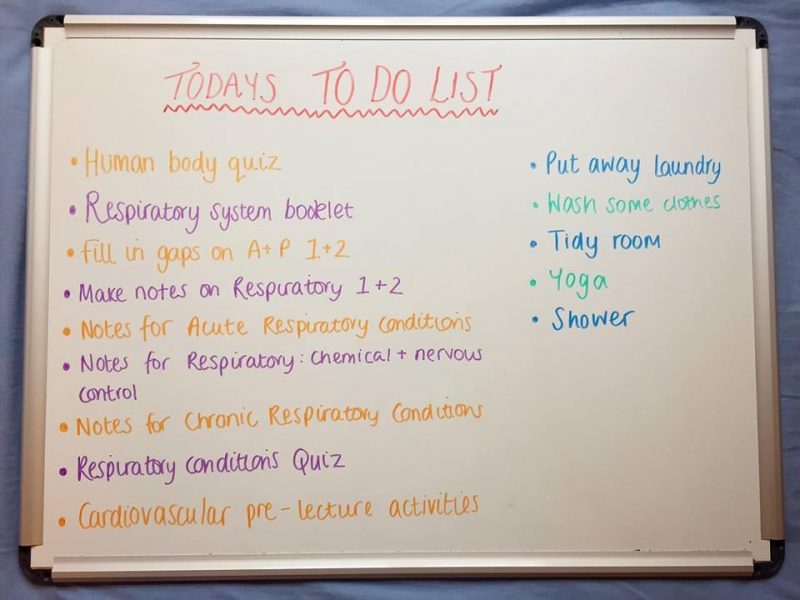 TODAYS TO DO LIST
• Human body quiz
• Respiratory system booklet
• Fill in gaps on A+P 1+2
• Make notes on Respiratory 1+2
• Notes for Acute Respiratory conditions
• Notes for Respiratory: chemical + nervous
control
• Notes for Chronic Respiratory Conditions
• Respiratory conditions Quiz
• Cardiovascular pre-lecture activities
• Put away laundry
• Wash some clothes
• Tidy room
• Yoga
• Shower